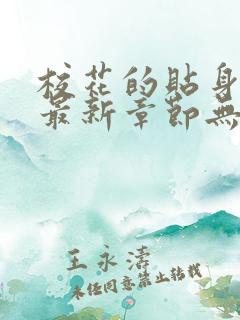 校花的貼身
最新章節無
王永濤
未经同意禁止转载